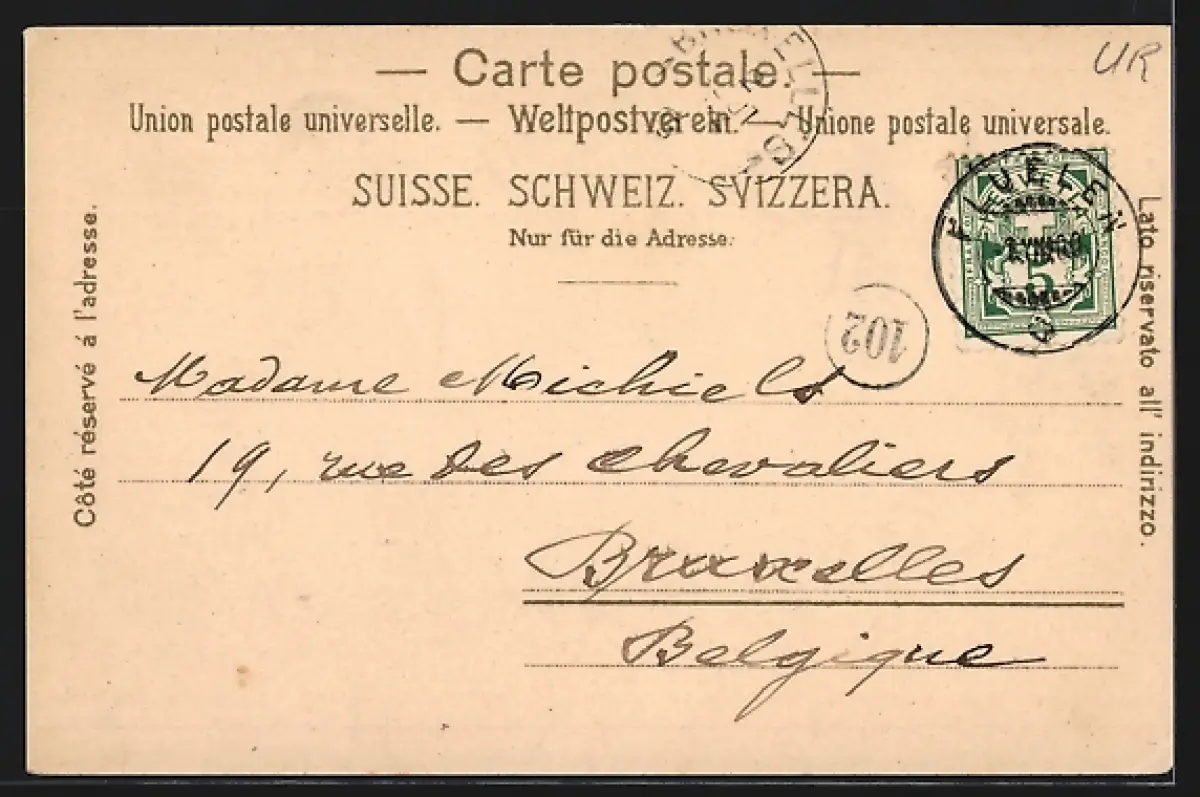 — Carte postale. —
UR
Union postale universelle. — Weltpostverein. — Unione postale universale.
SUISSE. SCHWEIZ. SVIZZERA.
Nur für die Adresse.
BRUXELLES
FLUELEN
5
102
Côté réservé á l'adresse.
Lato riservato all' indirizzo.
Madame Michiels
19, rue des Chevaliers
Bruxelles
Belgique